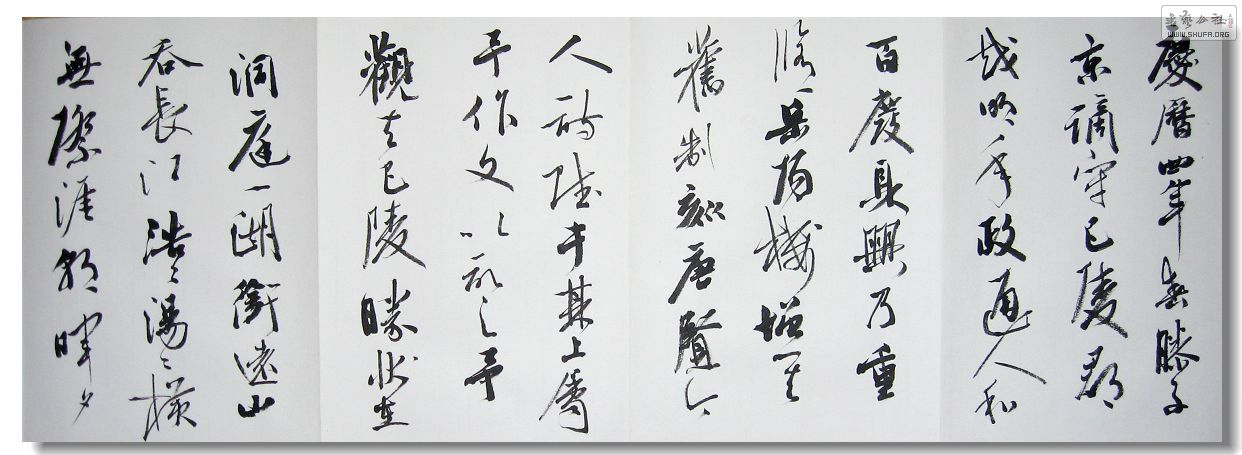 慶曆四年春滕子
京謫守巴陵郡
越明年政通人和
百廢具興乃重
修岳陽樓增其
舊制刻唐賢今
人詩賦于其上屬
予作文以記之予
觀夫巴陵勝狀在
洞庭一湖銜遠山
吞長江浩〻湯〻橫
無際涯朝暉夕
书艺公社
WWW.SHUFA.ORG